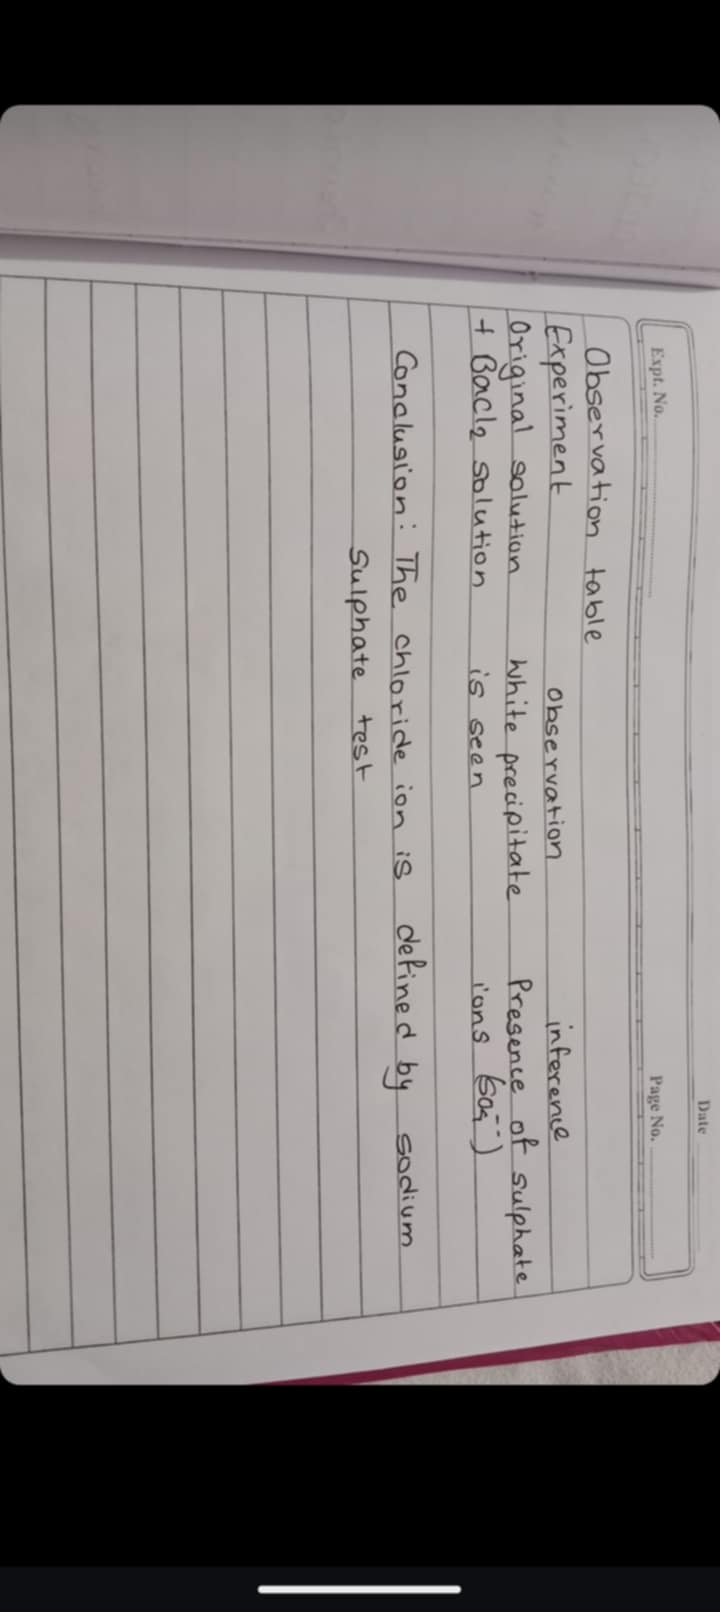 Date
Expt. No.
Page No.
Observation table
Experiment Observation inference
Original solution White precipitate Presence of sulphate
+ Bacl2 solution is seen ions (SO4--)
Conclusion: The chloride ion is defined by sodium
Sulphate test